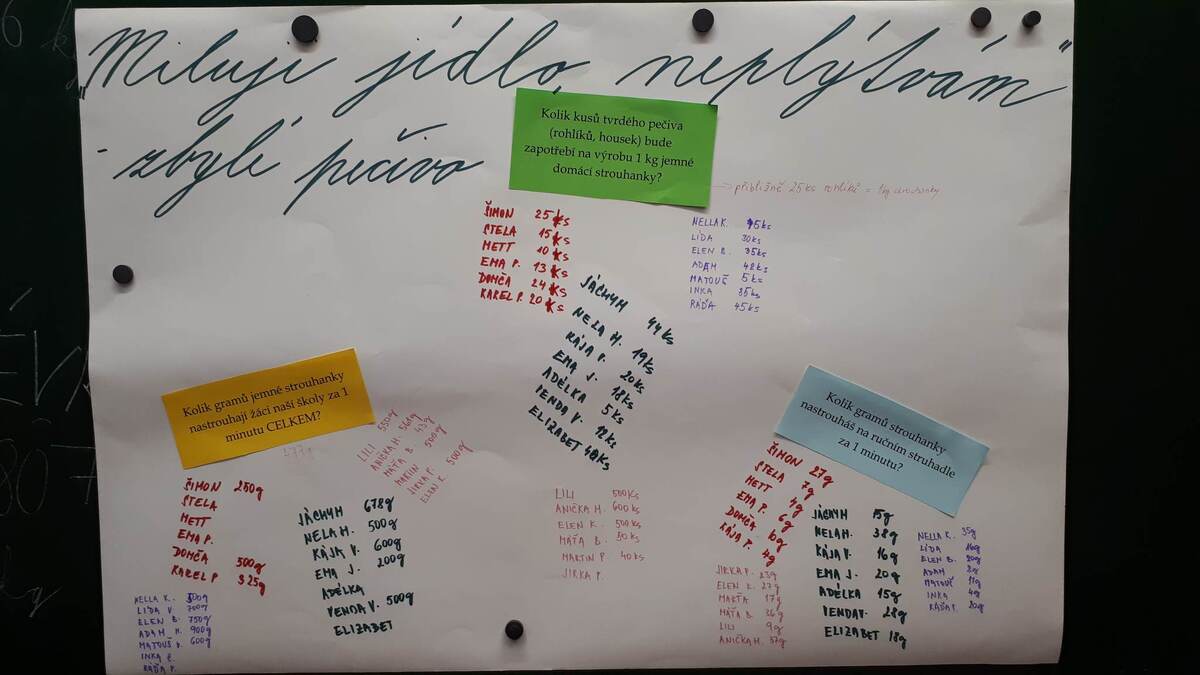 „Miluji jídlo, neplýtvám"
- zbylé pečivo
Kolik kusů tvrdého pečiva
(rohlíků, housek) bude
zapotřebí na výrobu 1 kg jemné
domácí strouhanky?
přibližně 25 ks rohlíků = 1kg strouhanky
ŠIMON 25 ks
STELA 15 ks
METT 10 ks
EMA P. 13 ks
DOMČA 24 ks
KAREL P. 20 ks
NELLA K. 15 ks
LÍDA 30 ks
ELEN B. 35 ks
ADAM 48 ks
MATOUŠ 5 ks
INKA 35 ks
RÁĎA 45 ks
JÁCHYM 44 ks
NELA H. 19 ks
KÁJA V. 20 ks
EMA J. 18 ks
ADÉLKA 5 ks
VENDA V. 12 ks
ELIZABET 40 ks
LILI 500 ks
ANIČKA H. 600 ks
ELEN K. 500 ks
MÁŤA B. 30 ks
MARTIN P 40 ks
JIRKA P.
Kolik gramů jemné strouhanky
nastrouhají žáci naší školy za 1
minutu CELKEM?
LILI 550g
ANIČKA H. 560g
MÁŤA B. 43g
MARTIN 500g
JIRKA P.
ELEN K. 500g
ŠIMON 250g
STELA
METT
EMA P.
DOMČA 500g
KAREL P 325g
JÁCHYM 678g
NELA H. 500g
KÁJA V. 600g
EMA J. 200g
ADÉLKA
VENDA V. 500g
ELIZABET
NELLA K. 500g
LÍDA V. 700g
ELEN B. 750g
ADAM H. 900g
MATOUŠ V. 600g
INKA Č.
RÁĎA P.
Kolik gramů strouhanky
nastrouháš na ručním struhadle
za 1 minutu?
ŠIMON 27g
STELA 7g
METT 4g
EMA P. 6g
DOMČA 10g
KÁJA P. 4g
JIRKA P. 23g
ELEN K. 27g
MARŤA 17g
MÁŤA B. 26g
LILI 9g
ANIČKA H. 37g
JÁCHYM 15g
NELA H. 38g
KÁJA V. 16g
EMA J. 20g
ADÉLKA 15g
VENDA V. 28g
ELIZABET 18g
NELLA K. 35g
LÍDA
ELEN B. 20g
ADAM 8g
MATOUŠ 11g
INKA 4g
RÁĎA P. 20g